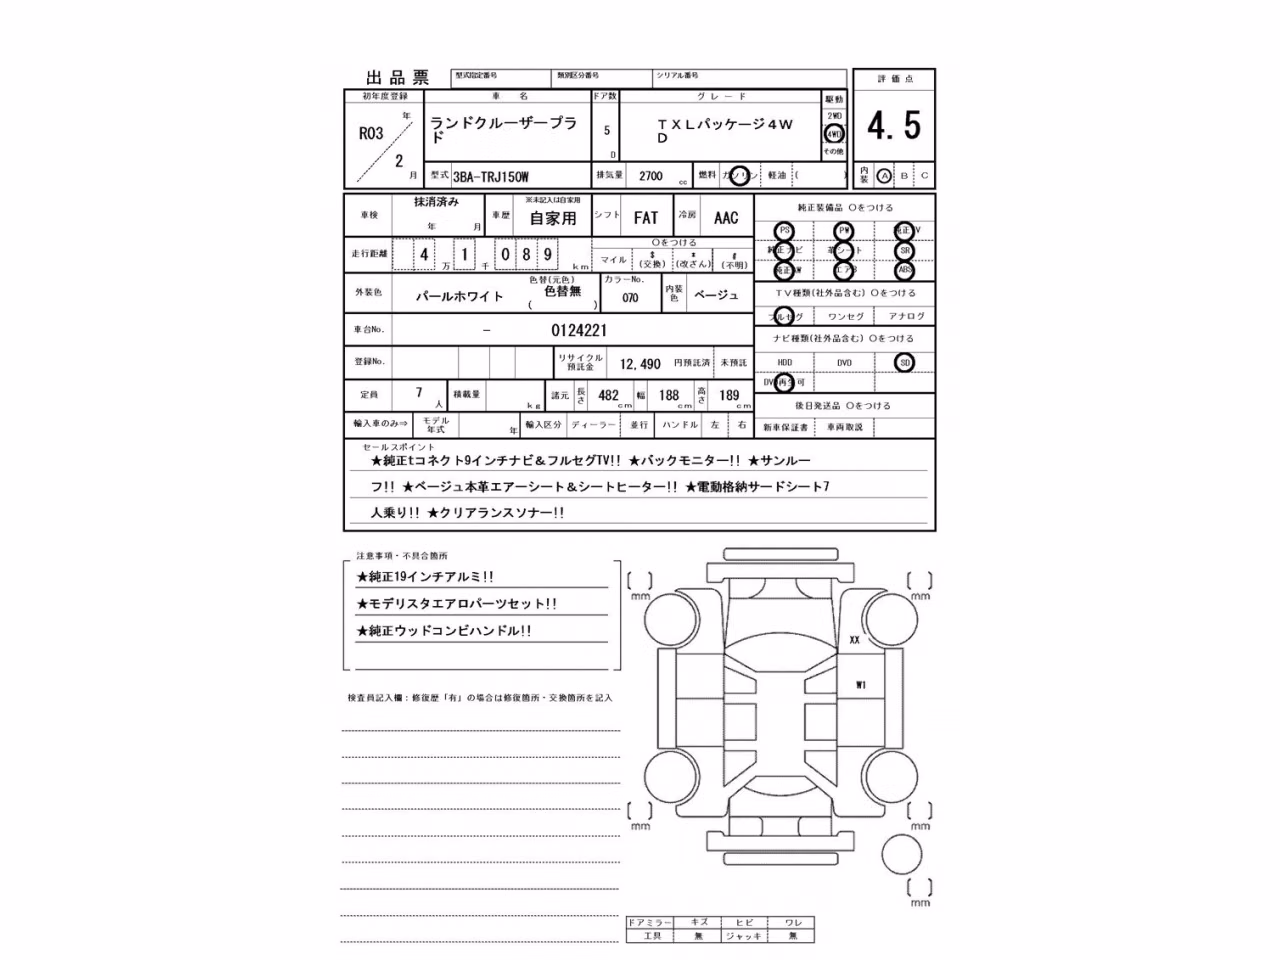 出品票 型式指定番号 類別区分番号 シリアル番号
評価点
4.5
内装 A B C
初年度登録 車名 ドア数 グレード 駆動
R03 年 2 月
ランドクルーザープラ
ド
5 D
TXLパッケージ4W
D
2WD
4WD
その他
型式 3BA-TRJ150W 排気量 2700 cc 燃料 ガソリン 軽油 ( )
車検 抹消済み 年 月 車歴 ※未記入は自家用 自家用 シフト FAT 冷房 AAC
走行距離 4 万 1 千 0 8 9 km
〇をつける
マイル $(交換) *(改ざん) #(不明)
外装色 パールホワイト 色替(元色) 色替無 ( ) カラーNo. 070 内装色 ベージュ
車台No. - 0124221
登録No. リサイクル預託金 12,490 円預託済 未預託
定員 7 人 積載量 kg 諸元 長さ 482 cm 幅 188 cm 高さ 189 cm
輸入車のみ⇒ モデル年式 年 輸入区分 ディーラー 並行 ハンドル 左 右
純正装備品 〇をつける
PS PW 純正TV
純正ナビ 革シート SR
純正AW エアB ABS
TV種類(社外品含む) 〇をつける
フルセグ ワンセグ アナログ
ナビ種類(社外品含む) 〇をつける
HDD DVD SD
DVD再生可
後日発送品 〇をつける
新車保証書 車両取説
セールスポイント
★純正tコネクト9インチナビ&フルセグTV!! ★バックモニター!! ★サンルー
フ!! ★ベージュ本革エアーシート&シートヒーター!! ★電動格納サードシート7
人乗り!! ★クリアランスソナー!!
注意事項・不具合箇所
★純正19インチアルミ!!
★モデリスタエアロパーツセット!!
★純正ウッドコンビハンドル!!
検査員記入欄：修復歴「有」の場合は修復箇所・交換箇所を記入
[ ] mm [ ] mm
XX
W1
[ ] mm [ ] mm
[ ] mm
ドアミラー キズ ヒビ ワレ
工具 無 ジャッキ 無